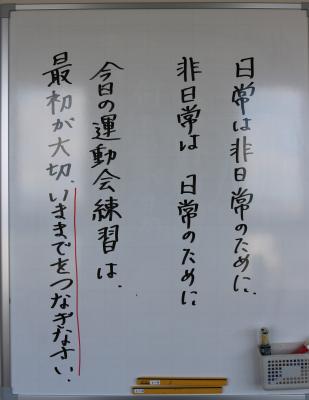 日常は非日常のために、
非日常は 日常のために
今日の運動会練習は、
最初が大切、いままでをつなぎなさい。